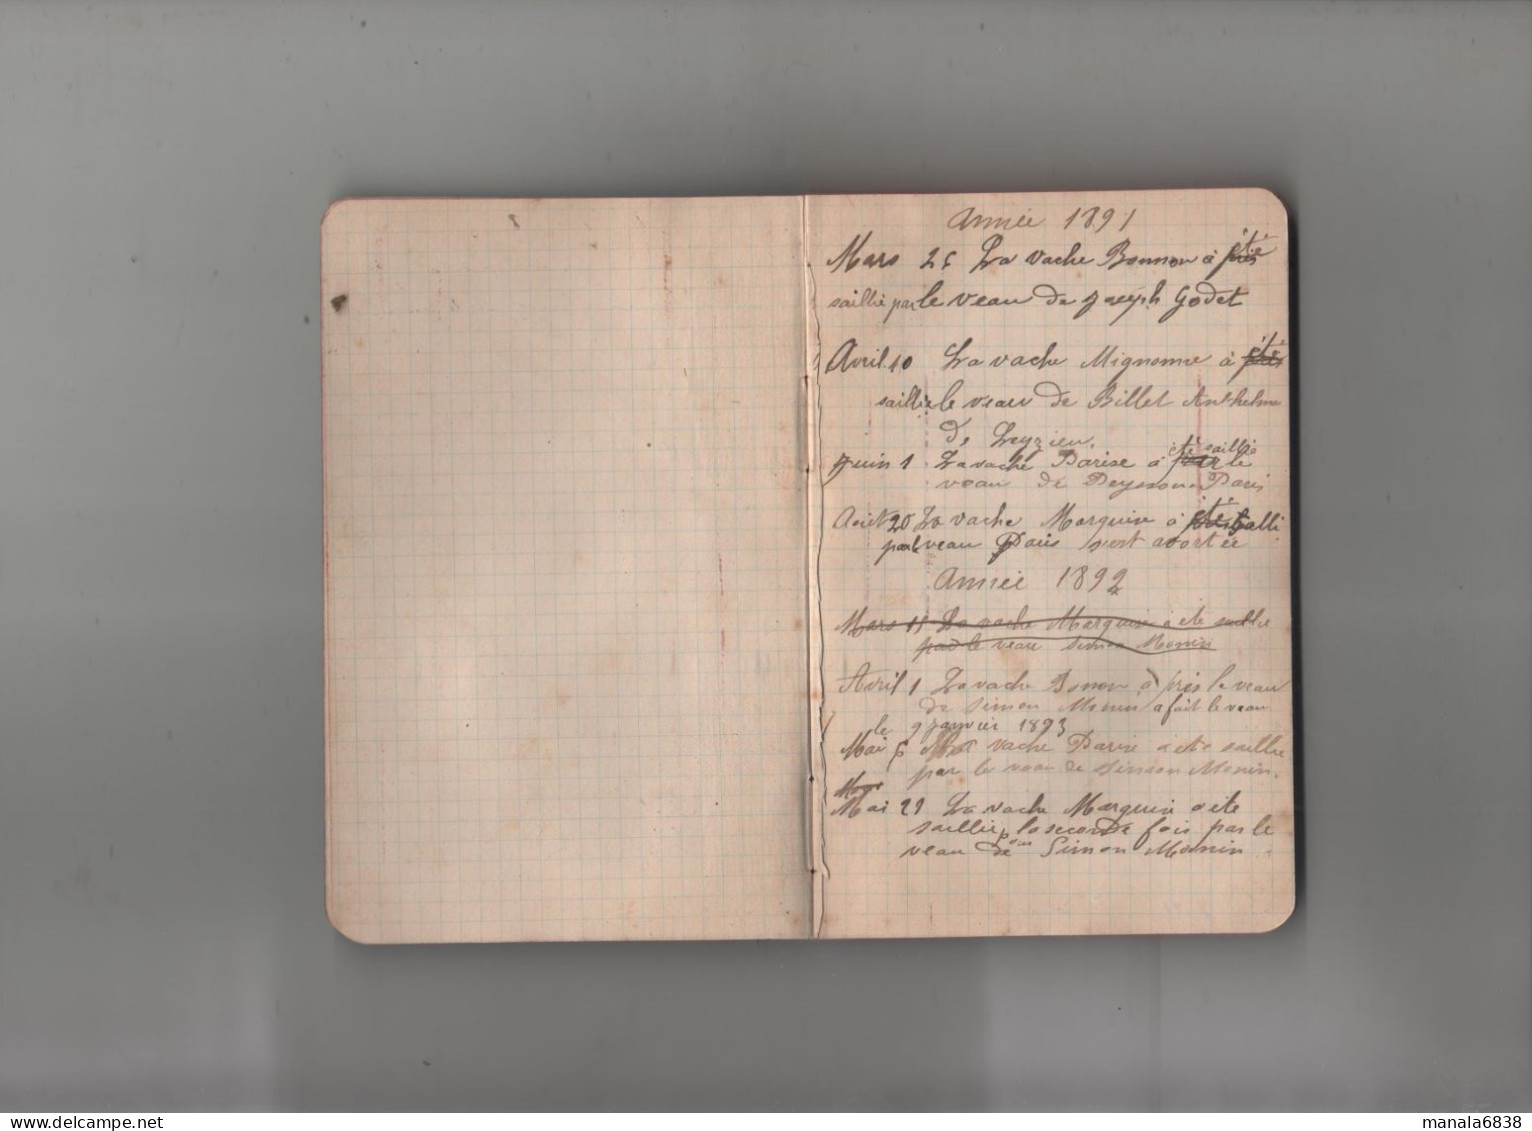 Année 1891
Mars 25 La vache Bonnon à été
saillie par le veau de Joseph Godet
Avril 10 La vache Mignonne à été
saillie le veau de Billet Anthelme
de Leyzieu.
Juin 1 La vache Parise à été saillie le
veau de Peysson Paris
Août 20 La vache Marquise à été sailli
par veau Paris s'est avortée
Année 1892
Mars 11 La vache Marquise à été saillie
par le veau Simon Monin
Avril 1 La vache Bonon à pris le veau
de Simon Monin a fait le veau
le 9 janvier 1893
Mai 6 La vache Parise a été saillie
par le veau de Simon Monin.
Mai 29 La vache Marquise a été
saillie pour la seconde fois par le
veau de Simon Monin
manala6838